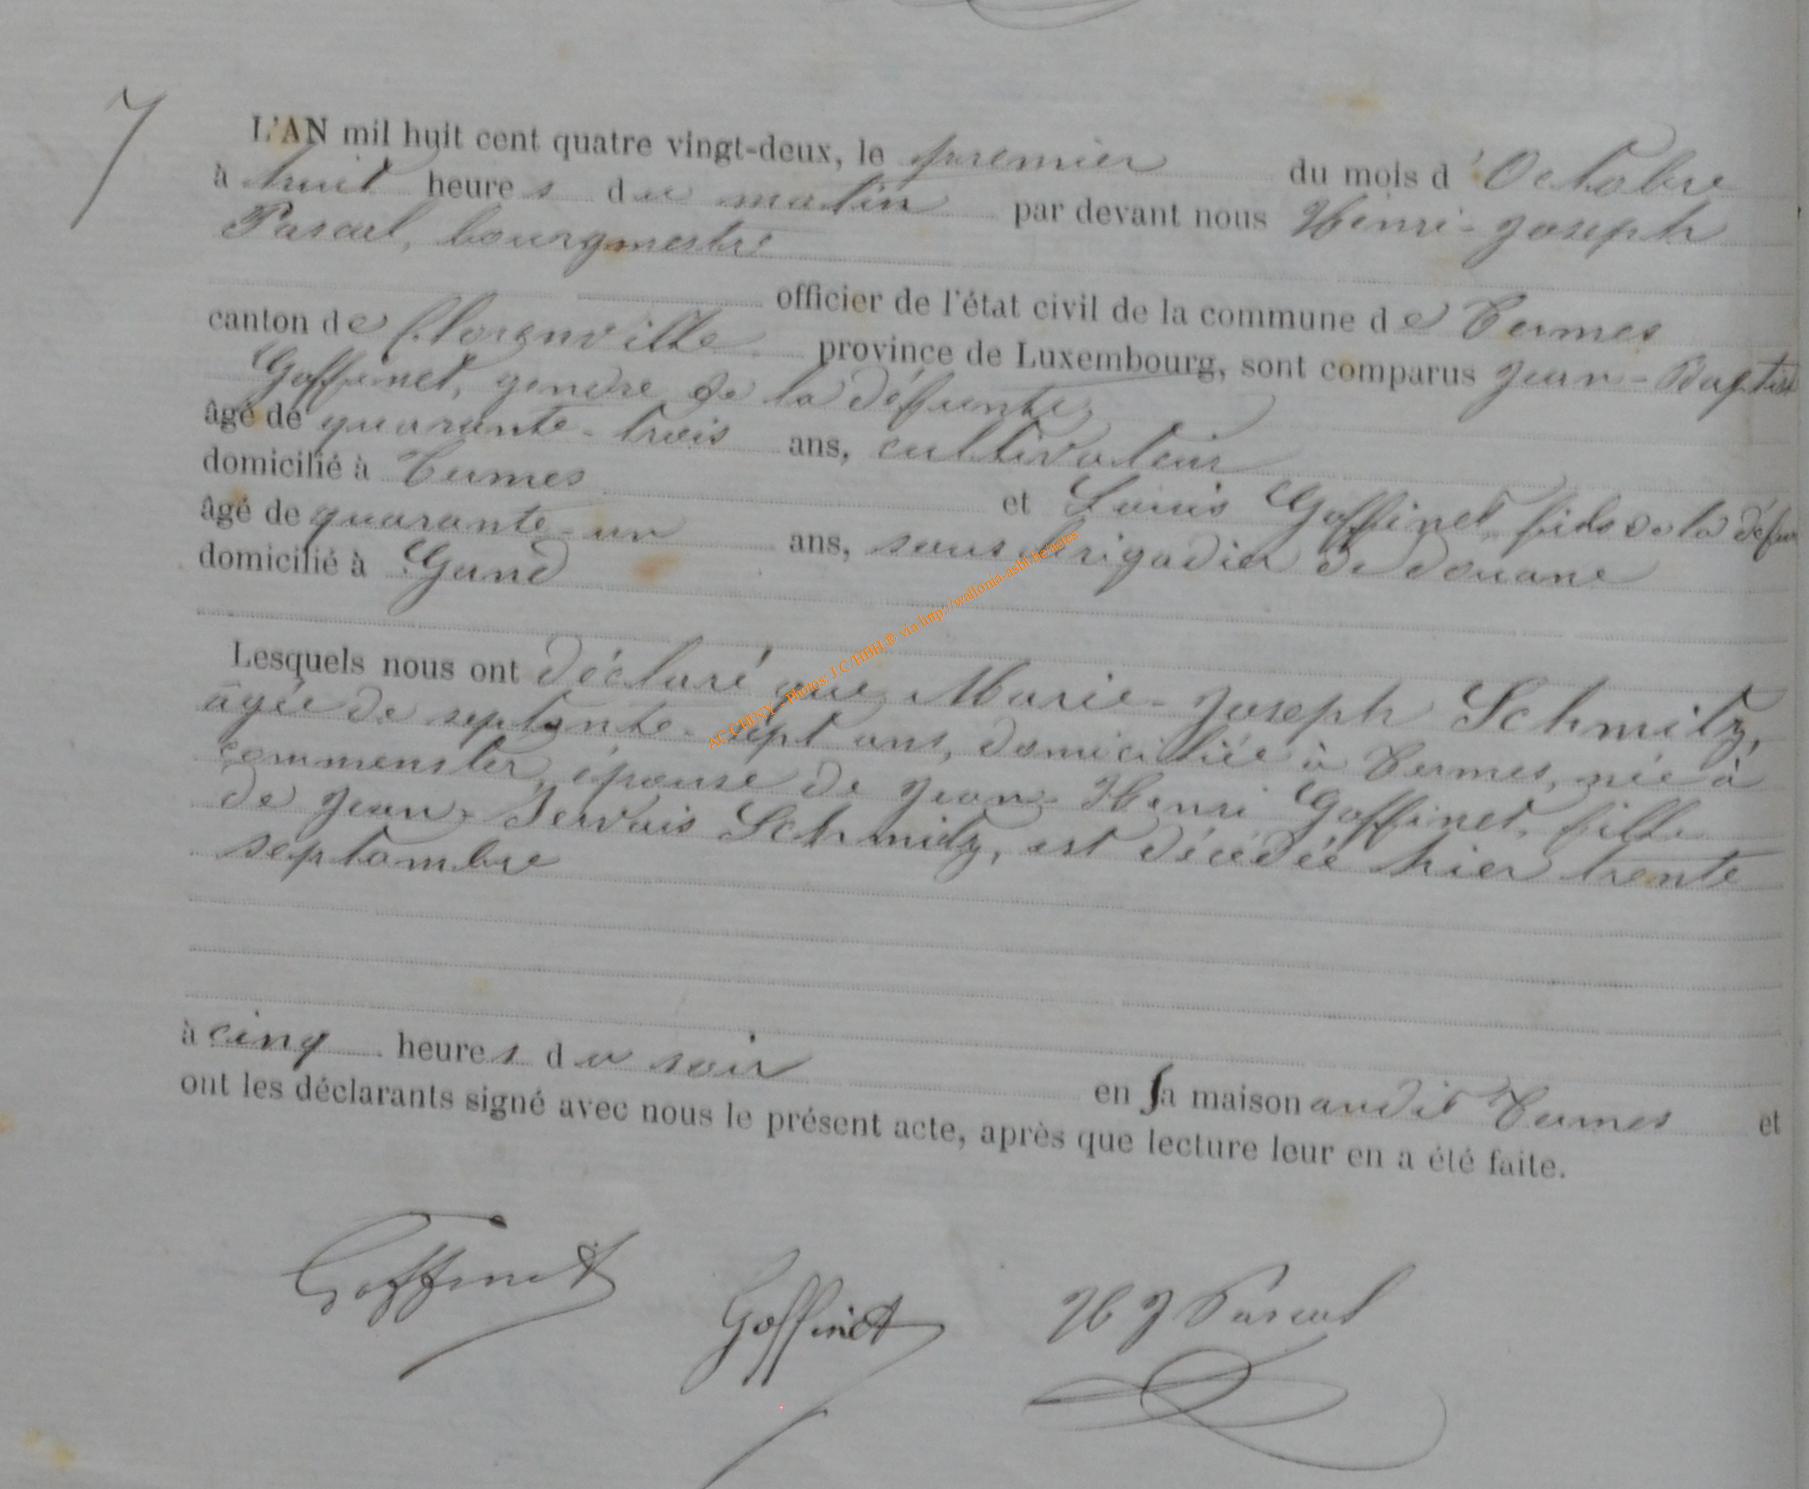 7
L'AN mil huit cent quatre vingt-deux, le premier du mois d'Octobre
à huit heures du matin par devant nous Henri-Joseph
Pascal, bourgmestre
officier de l'état civil de la commune de Termes
canton de Florenville province de Luxembourg, sont comparus Jean-Baptiste
Goffinet, gendre de la défunte,
âgé de quarante-trois ans, cultivateur
domicilié à Termes et Louis Goffinet, fils de la défun
âgé de quarante-un ans, sous brigadier de douane
domicilié à Gand
Lesquels nous ont déclaré que Marie-Joseph Schmitz,
âgée de septante-sept ans, domiciliée à Termes, née à
Commenster, épouse de Jean-Henri Goffinet, fille
de Jean-Servais Schmitz, est décédée hier trente
septembre
à cinq heures du soir en sa maison audit Termes et
ont les déclarants signé avec nous le présent acte, après que lecture leur en a été faite.
Goffinet Goffinet H J Pascal
AC CHINY - Photos J.C HBH ® via http://wallonia-asbl.be/actes